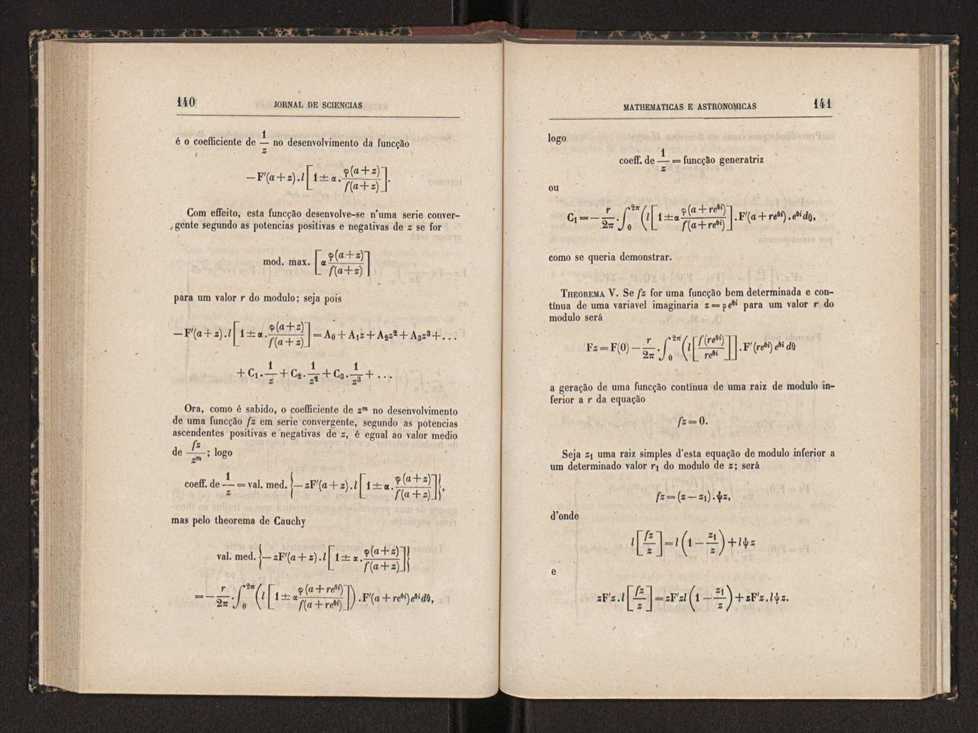 140 JORNAL DE SCIENCIAS
é o coefficiente de 1/z no desenvolvimento da funcção
— F'(a + z) . l [1 ± α . φ(a + z)/f(a + z)].
Com effeito, esta funcção desenvolve-se n'uma serie conver-
gente segundo as potencias positivas e negativas de z se for
mod. max. [α φ(a + z)/f(a + z)]
para um valor r do modulo; seja pois
— F'(a + z) . l [1 ± α . φ(a + z)/f(a + z)] = A₀ + A₁z + A₂z² + A₃z³ + . . .
+ C₁ . 1/z + C₂ . 1/z² + C₃ . 1/z³ + . . .
Ora, como é sabido, o coefficiente de zᵐ no desenvolvimento
de uma funcção fz em serie convergente, segundo as potencias
ascendentes positivas e negativas de z, é egual ao valor medio
de fz/zᵐ; logo
coeff. de 1/z = val. med. {— zF'(a + z) . l [1 ± α . φ(a + z)/f(a + z)]},
mas pelo theorema de Cauchy
val. med. {— zF'(a + z) . l [1 ± α . φ(a + z)/f(a + z)]}
= — r/2π . ∫₀²π (l [1 ± α φ(a + reθi)/f(a + reθi)]) . F'(a + reθi) eθi dθ,
MATHEMATICAS E ASTRONOMICAS 141
logo
coeff. de 1/z = funcção generatriz
ou
C₁ = — r/2π . ∫₀²π (l [1 ± α φ(a + reθi)/f(a + reθi)] . F'(a + reθi) . eθi dθ,
como se queria demonstrar.
THEOREMA V. Se fz for uma funcção bem determinada e con-
tinua de uma variavel imaginaria z = ρeθi para um valor r do
modulo será
Fz = F(0) — r/2π . ∫₀²π (l [f(reθi)/reθi]] . F'(reθi) eθi dθ
a geração de uma funcção continua de uma raiz de modulo in-
ferior a r da equação
fz = 0.
Seja z₁ uma raiz simples d'esta equação de modulo inferior a
um determinado valor r₁ do modulo de z; será
fz = (z — z₁) . ψz,
d'onde
l [fz/z] = l (1 — z₁/z) + lψz
e
zF'z . l [fz/z] = zF'zl (1 — z₁/z) + zF'z . lψz.